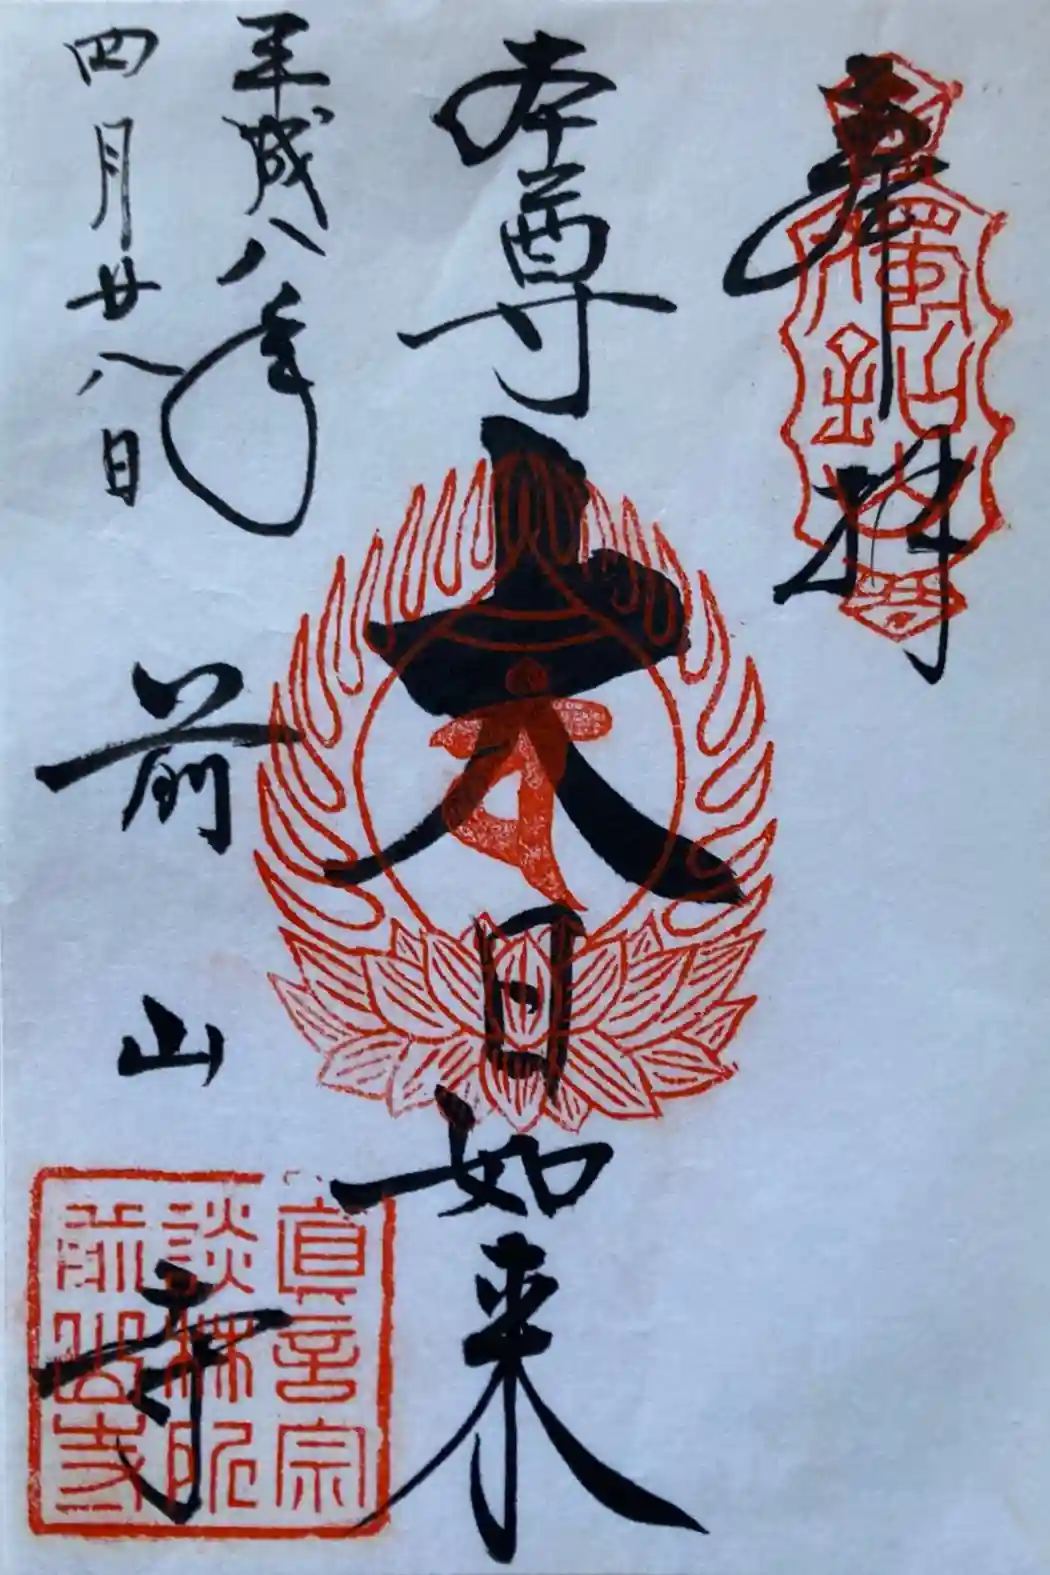 奉拝
獨鈷山
本尊
大日如来
平成八年
四月廿八日
前山寺
真言宗
談林所
前山寺